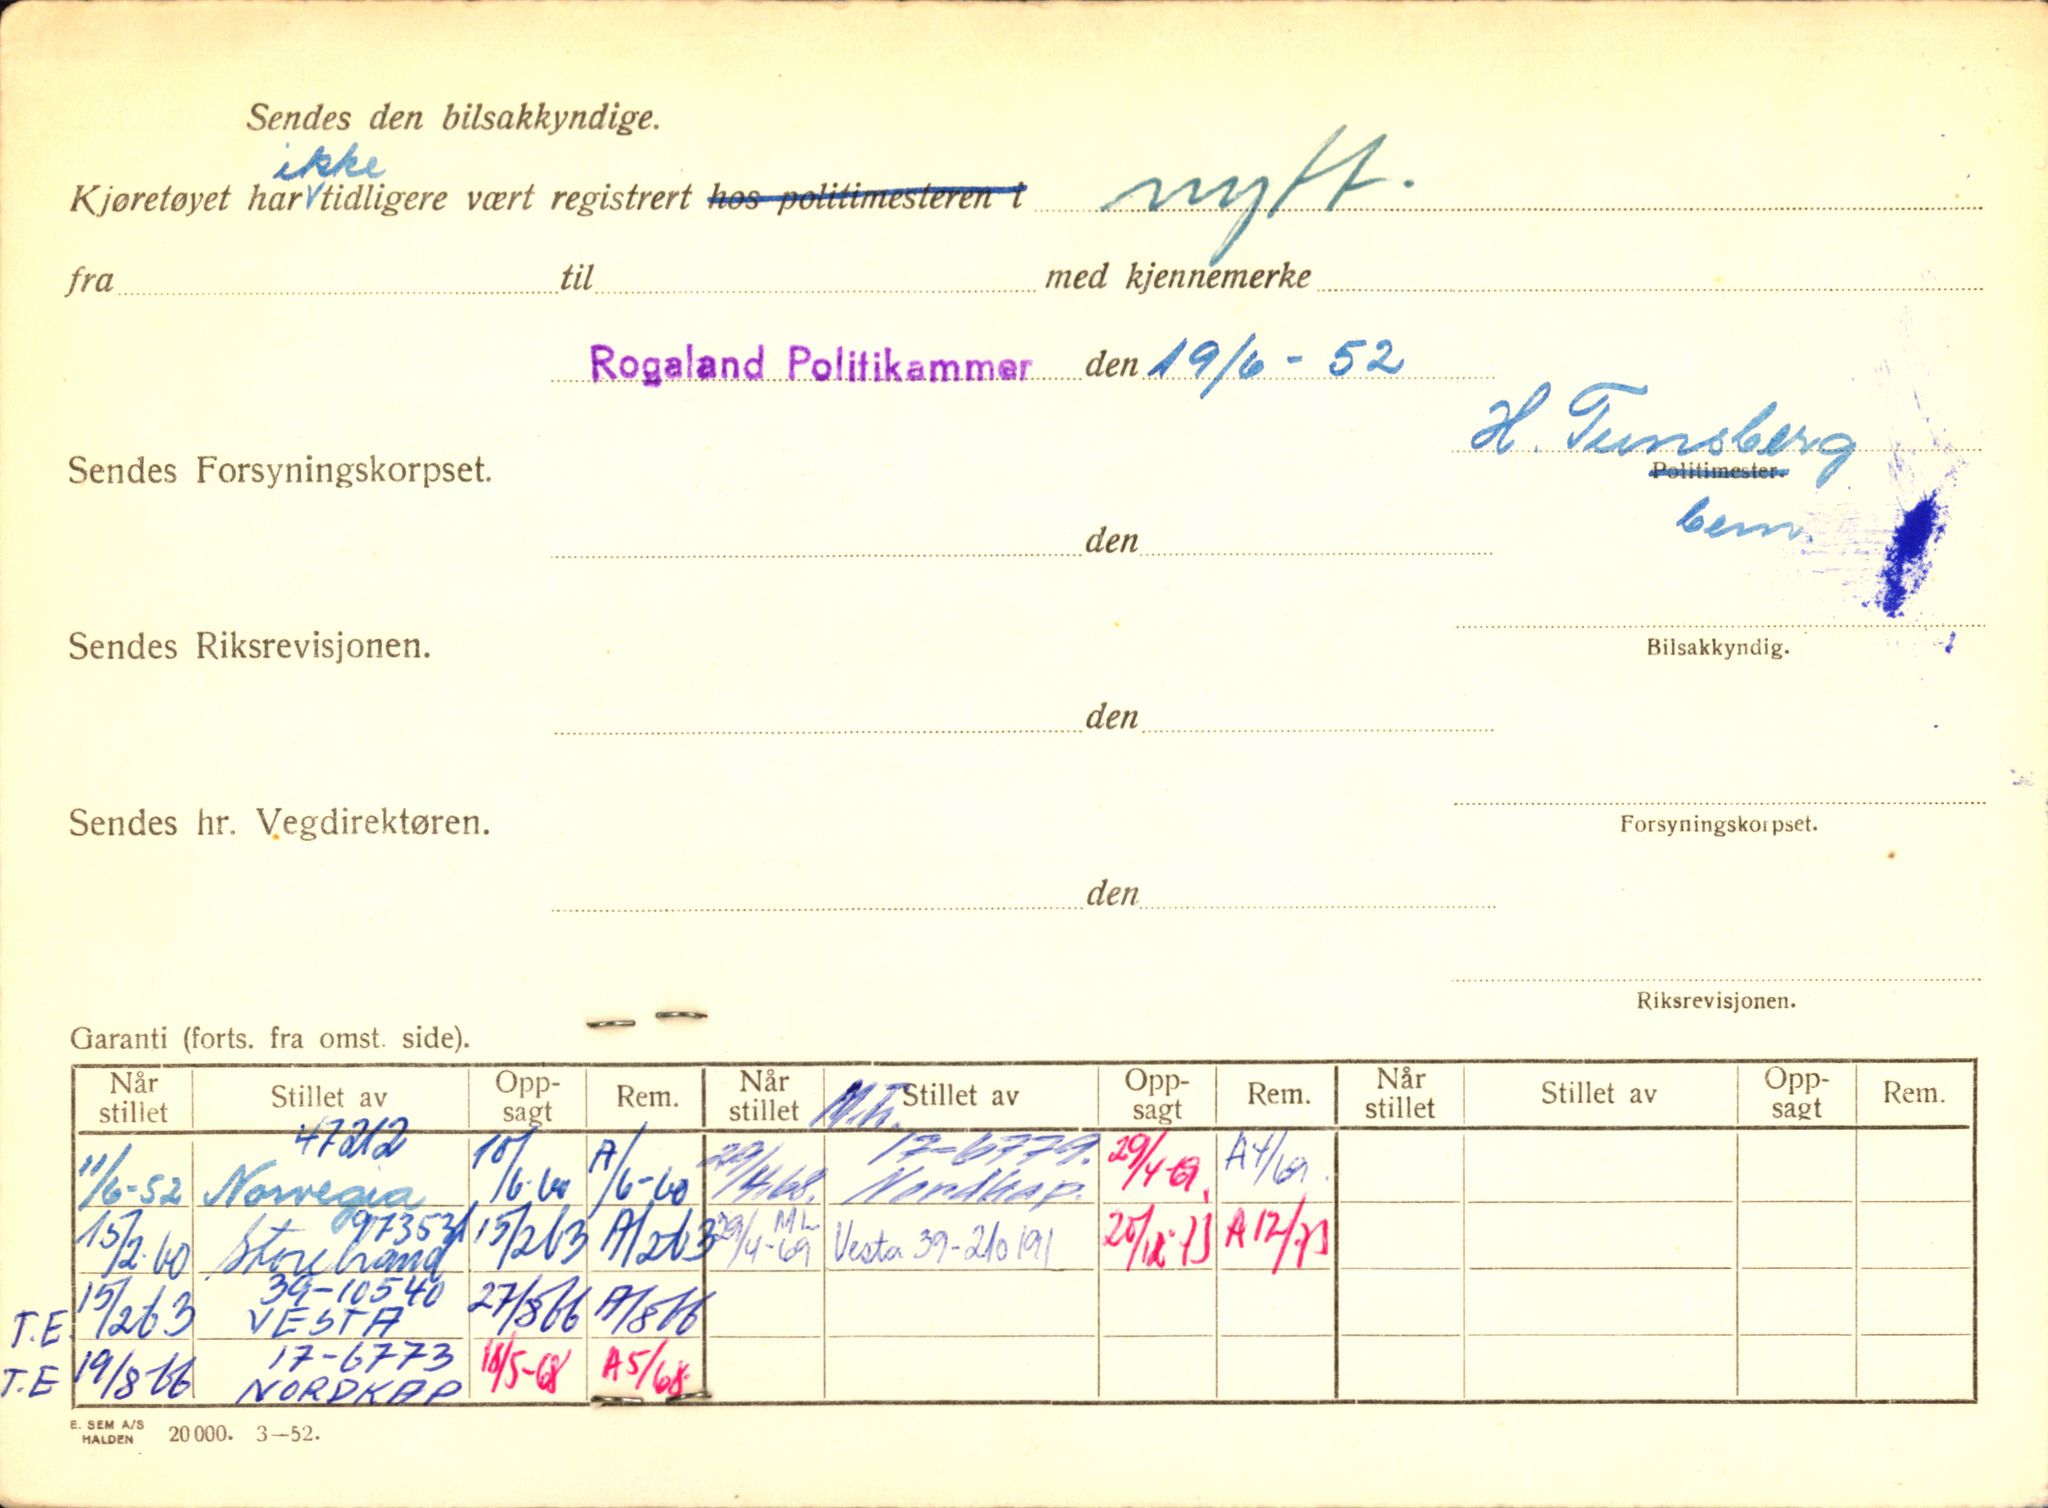 Sendes den bilsakkyndige.
ikke
Kjøretøyet har tidligere vært registrert hos politimesteren i nytt.
fra til med kjennemerke
Rogaland Politikammer den 19/6 - 52
H. Tunsberg
Sendes Forsyningskorpset. Politimester.
bem.
den
Sendes Riksrevisjonen. Bilsakkyndig.
den
Sendes hr. Vegdirektøren. Forsyningskorpset.
den
Riksrevisjonen.
Garanti (forts. fra omst. side).
Når stillet Stillet av Opp-sagt Rem. Når stillet Stillet av Opp-sagt Rem. Når stillet Stillet av Opp-sagt Rem.
47212 17-6779.
11/6-52 Norvegia 18/6-60 A/6-60 29/4.68. Nordkap. 29/4-69. A4/69.
97353 ML
15/2-60 Storebrand 15/2 63 A/2 63 29/4-69 Vesta 39-210191 A12/73
39-10540
T.E. 15/2 63 VESTA 27/8 66 A/8 66
17-6773
T.E 19/8 66 NORDKAP 18/5-68 A5/68.
E. SEM A/S
HALDEN 20 000. 3—52.